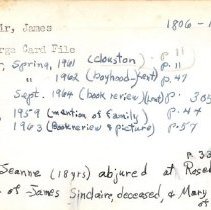 ir, James 1806-1
rge Card File
r, Spring, 1961 (Clouston) p. 11
" 1962 (boyhood-Lent) p. 47
Sept. 1964 (book review)(Lent) p. 305
, 1959 (mention of family) p. 44
1963 (Book review & picture) p. 57
p. 33
Jeanne (18 yrs) abjured at Rose
of James Sinclaire, deceased, & Mary